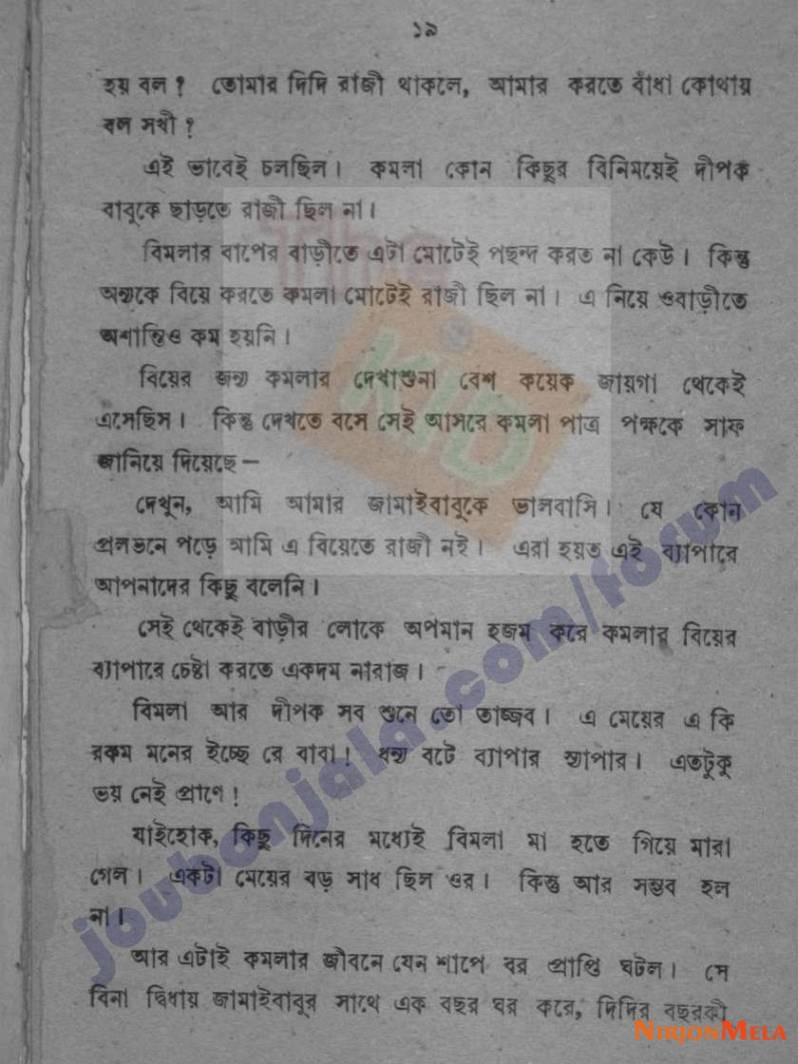 ১৯
হয় বল? তোমার দিদি রাজী থাকলে, আমার করতে বাঁধা কোথায়
বল সখী?
এই ভাবেই চলছিল। কমলা কোন কিছুর বিনিময়েই দীপক
বাবুকে ছাড়তে রাজী ছিল না।
বিমলার বাপের বাড়ীতে এটা মোটেই পছন্দ করত না কেউ। কিন্তু
অন্যকে বিয়ে করতে কমলা মোটেই রাজী ছিল না। এ নিয়ে ওবাড়ীতে
অশান্তিও কম হয়নি।
বিয়ের জন্য কমলার দেখাশুনা বেশ কয়েক জায়গা থেকেই
এসেছিস। কিন্তু দেখতে বসে সেই আসরে কমলা পাত্র পক্ষকে সাফ
জানিয়ে দিয়েছে—
দেখুন, আমি আমার জামাইবাবুকে ভালবাসি। যে কোন
প্রলভনে পড়ে আমি এ বিয়েতে রাজী নই। এরা হয়ত এই ব্যাপারে
আপনাদের কিছু বলেনি।
সেই থেকেই বাড়ীর লোকে অপমান হজম করে কমলার বিয়ের
ব্যাপারে চেষ্টা করতে একদম নারাজ।
বিমলা আর দীপক সব শুনে তো তাজ্জব। এ মেয়ের এ কি
রকম মনের ইচ্ছে রে বাবা! ধন্য বটে ব্যাপার স্যাপার। এতটুকু
ভয় নেই প্রাণে!
যাইহোক, কিছু দিনের মধ্যেই বিমলা মা হতে গিয়ে মারা
গেল। একটা মেয়ের বড় সাধ ছিল ওর। কিন্তু আর সম্ভব হল
না।
আর এটাই কমলার জীবনে যেন শাপে বর প্রাপ্তি ঘটল। সে
বিনা দ্বিধায় জামাইবাবুর সাথে এক বছর ঘর করে, দিদির বছরকী
The
KID
joubonjala.com/forum
NIRJONMELA